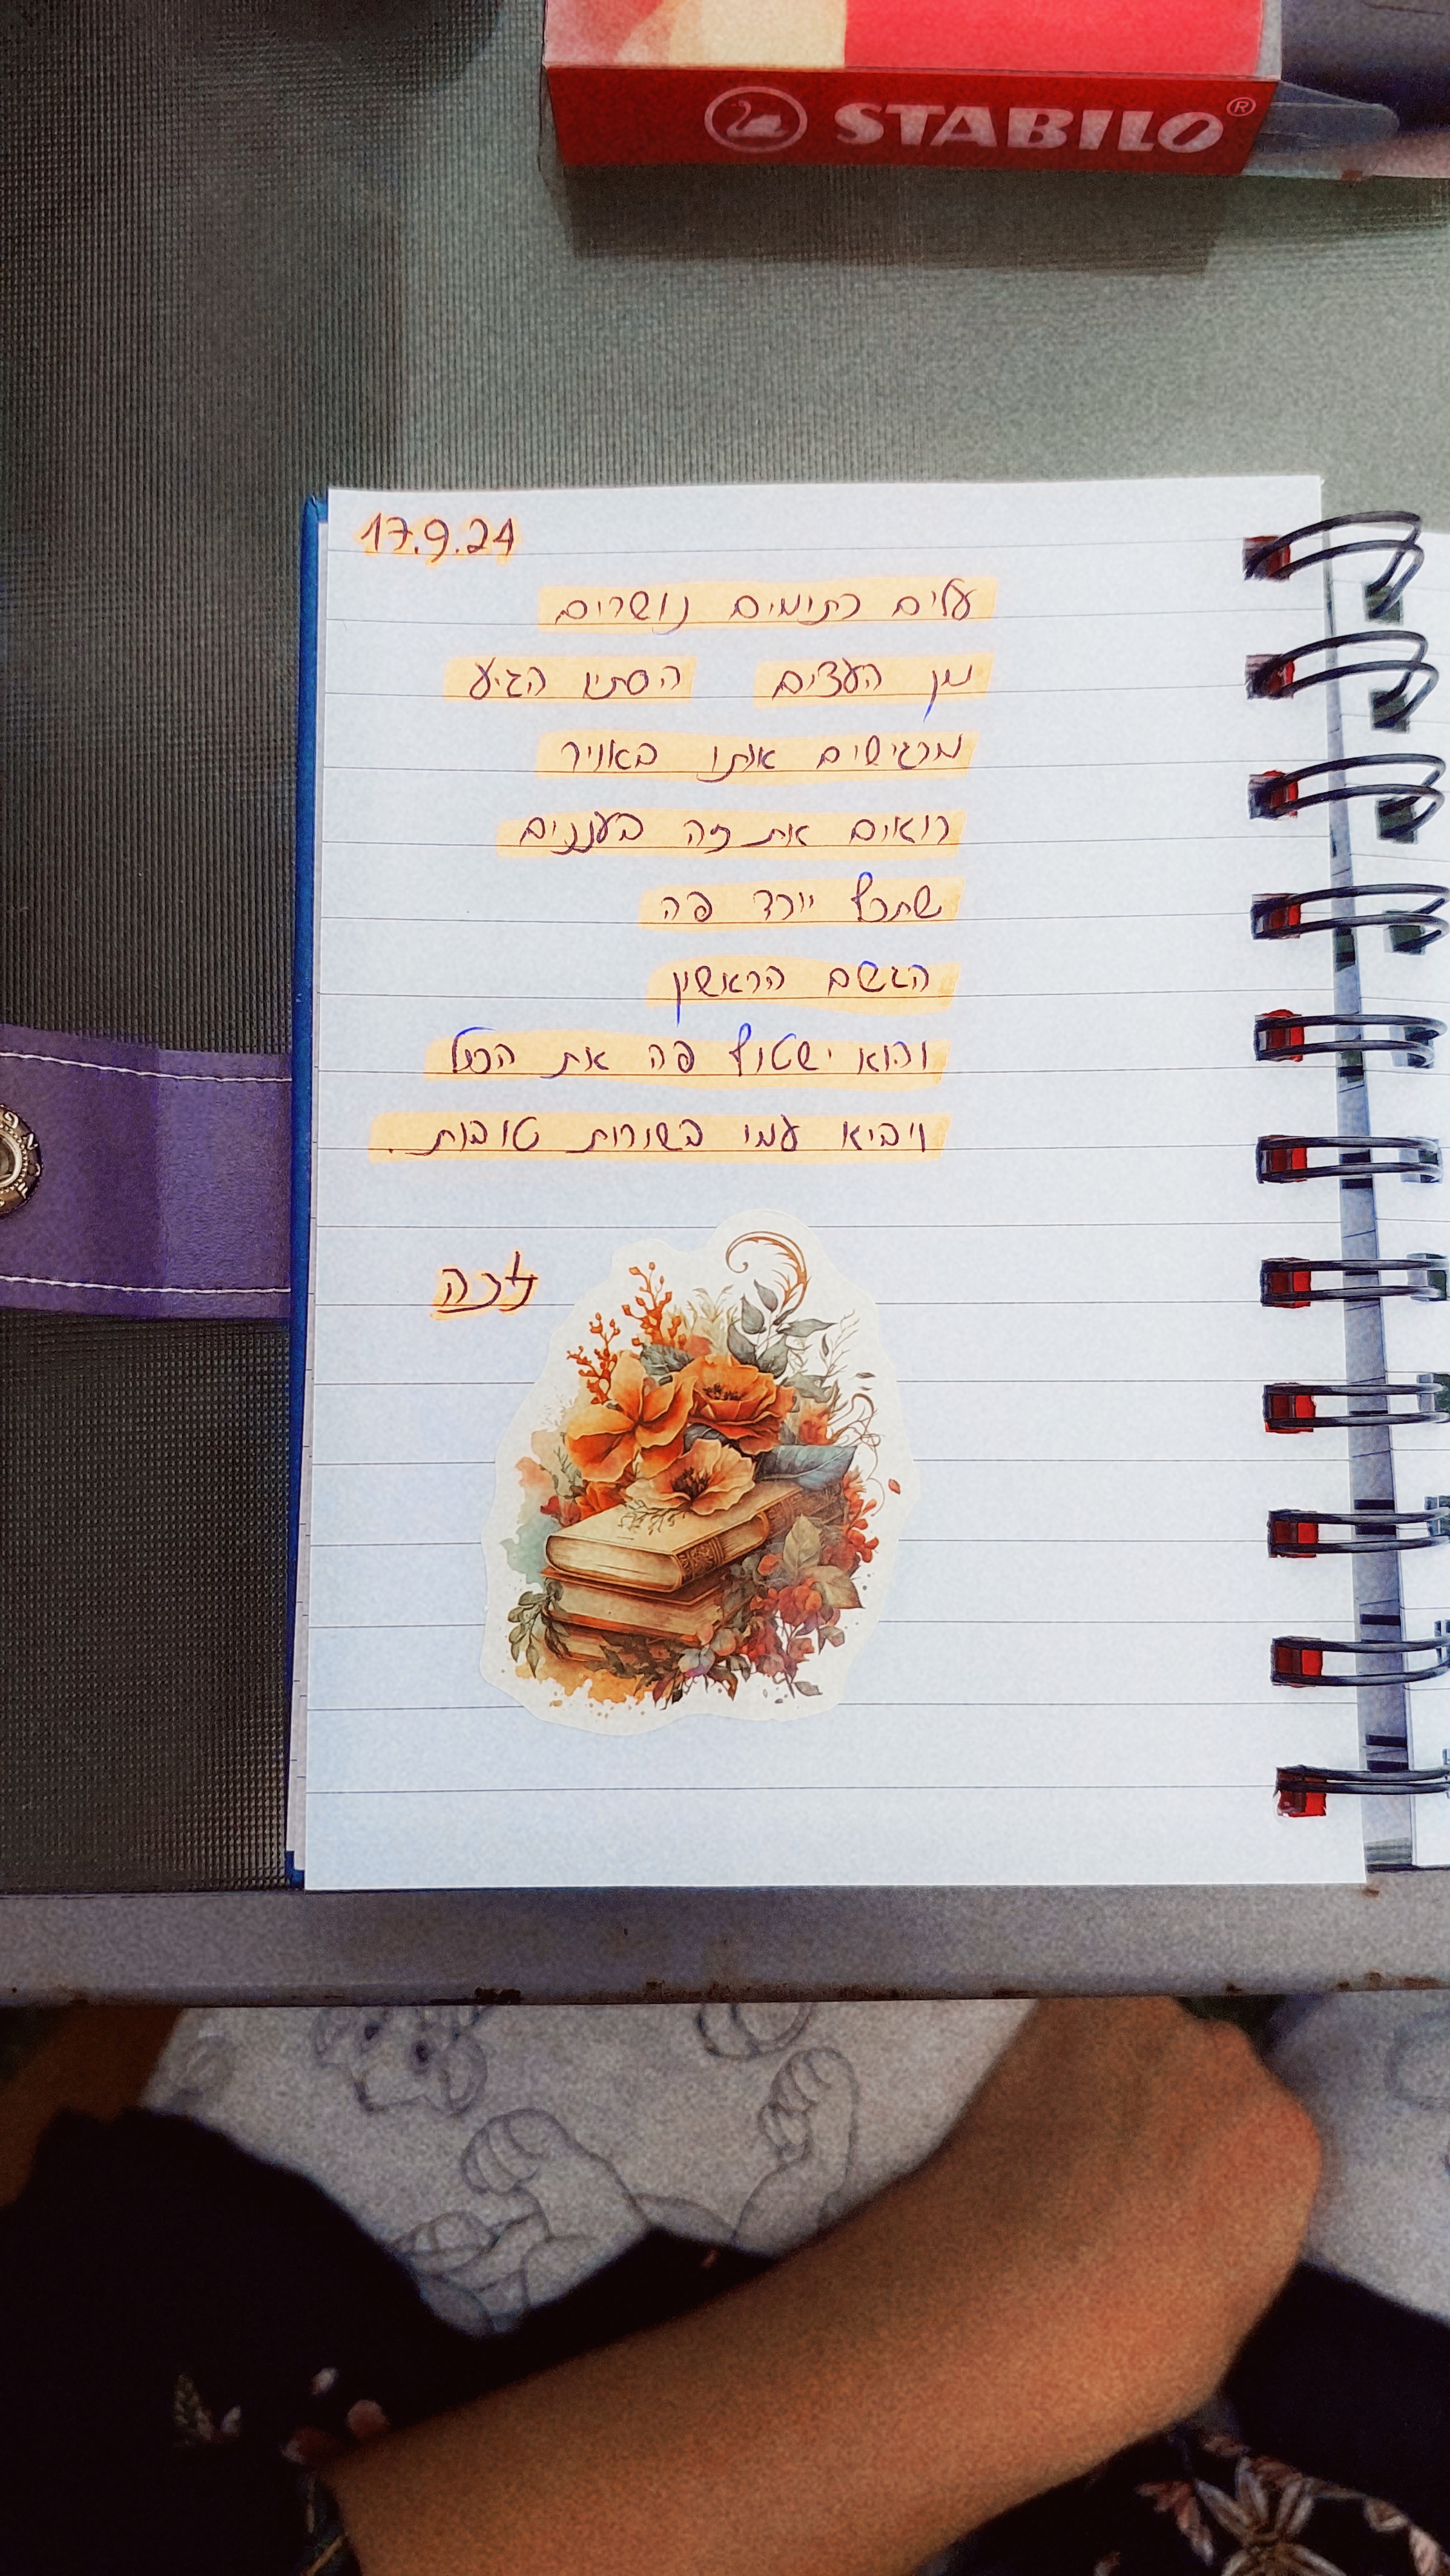 STABILO®
17.9.24
עלים כתומים נושרים
מן העצים הסתיו הגיע
מרגישים אותו באויר
רואים את זה בעננים
שתכף יורד פה
הגשם הראשון
והוא ישטוף פה את הכל
ויביא עמו בשורות טובות.